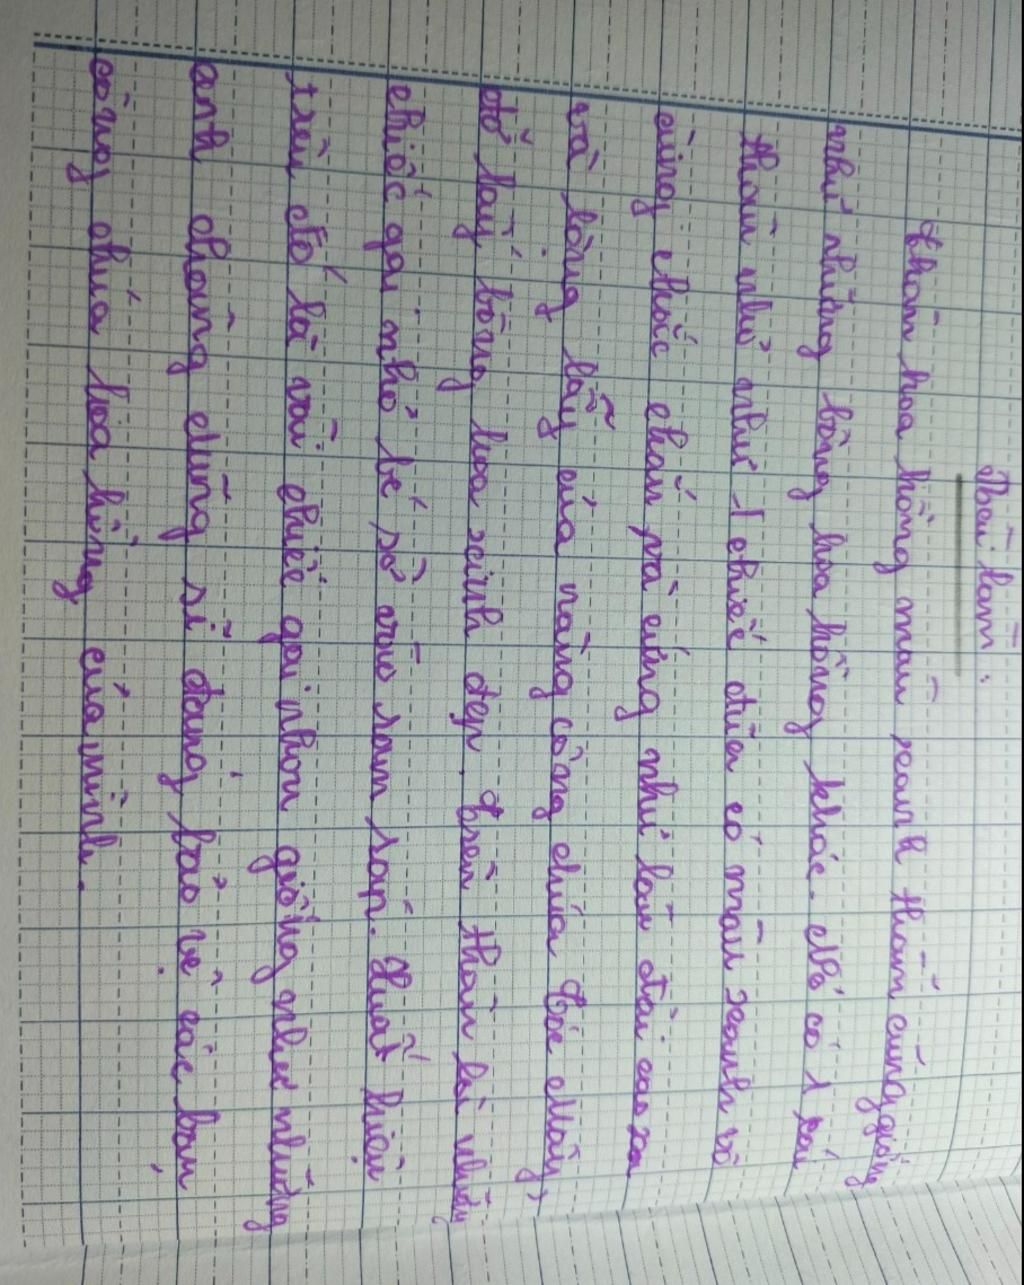 Bài làm:
Thân hoa hồng màu xanh thẫm cũng giống
như những bông hoa hồng khác. Nó có 1 cái
thân nhỏ như 1 chiếc đũa có màu xanh vô
cùng chắc chắn và cứng như lâu đài cao xa
và lộng lẫy của nàng công chúa tóc mây,
đỡ lấy bông hoa xinh đẹp. Trên thân là những
chiếc gai nhỏ bé sờ vào ram ráp. Xuất hiện
trên đó là vài chiếc gai nhọn giống như những
anh chàng dũng sĩ đang bảo vệ các bạn
công chúa hoa hồng của mình.